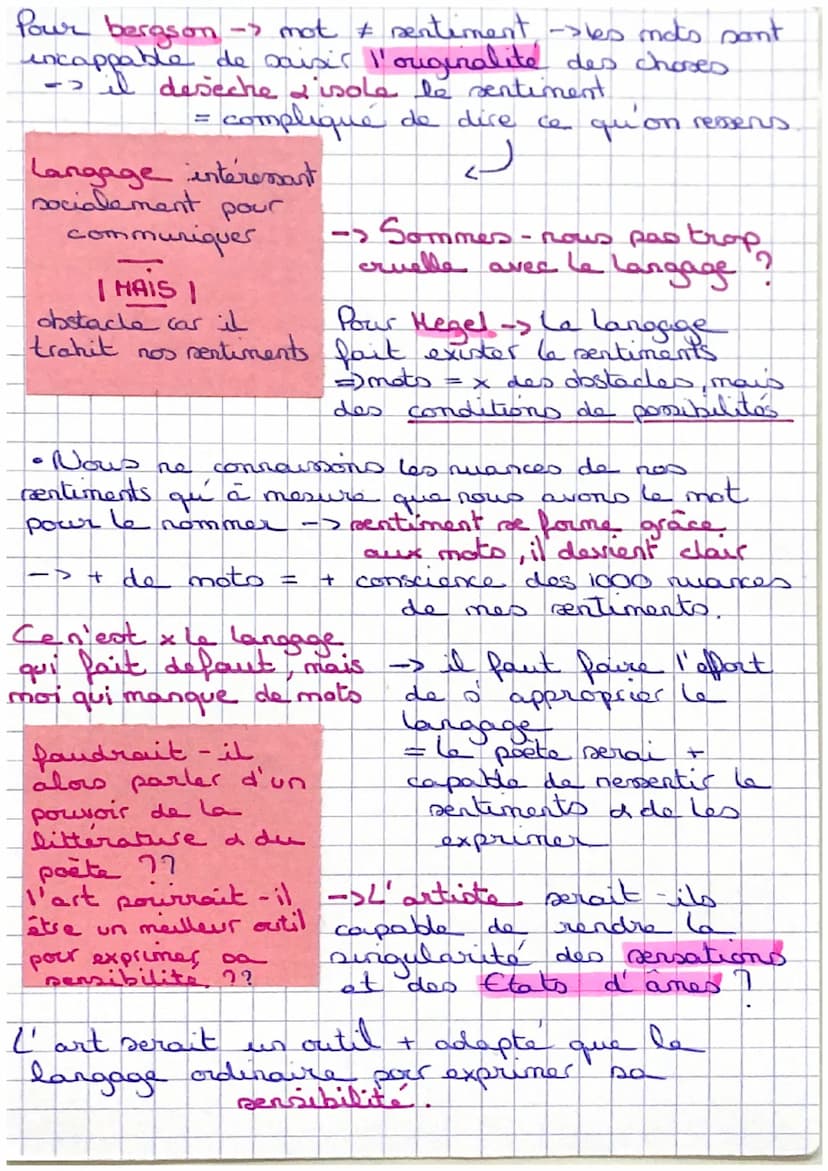 Pour bergson -> mot ≠ sentiment, -> les mots sont
incappable de saisir l'originalité des choses
-> il desèche & isole le sentiment
= compliqué de dire ce qu'on ressens.
Langage intéressant
socialement pour
communiquer
| MAIS |
obstacle car il
trahit nos sentiments
-> Sommes-nous pas trop
cruelle avec le langage ?
Pour Hegel -> Le langage
fait exister le sentiments
=> mots = x des obstacles, mais
des conditions de possibilités
• Nous ne connaissons les nuances de nos
sentiments qu'à mesure que nous avons le mot
pour le nommer -> sentiment se forme grâce
aux mots, il devient clair
-> + de mots = + conscience des 1000 nuances
de mes sentiments.
Ce n'est x le langage
qui fait defaut, mais
moi qui manque de mots
-> il faut faire l'effort
de s'approprier le
langage
= le poète serai +
capable de ressentir le
sentiments & de les
exprimer
faudrait-il
alors parler d'un
pouvoir de la
littérature & du
poète ??
l'art pourrait-il
être un meilleur outil
pour exprimer sa
sensibilité ??
-> L'artiste serait-ils
capable de rendre la
singularité des sensations
et des Etats d'âmes ?
L'art serait un outil + adapté que le
langage ordinaire pour exprimer sa
sensibilité.